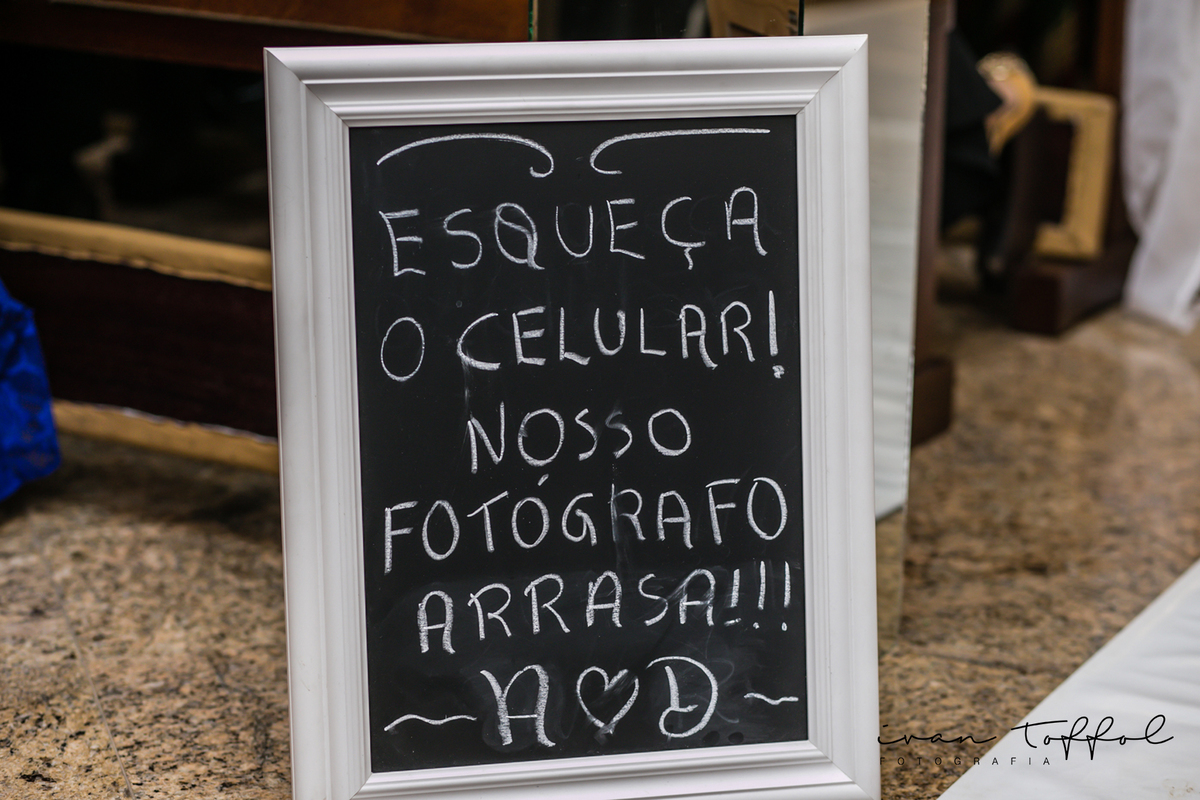 ESQUEÇA
O CELULAR!
NOSSO
FOTÓGRAFO
ARRASA!!!
~ A ♡ D ~
ivan toffol
FOTOGRAFIA